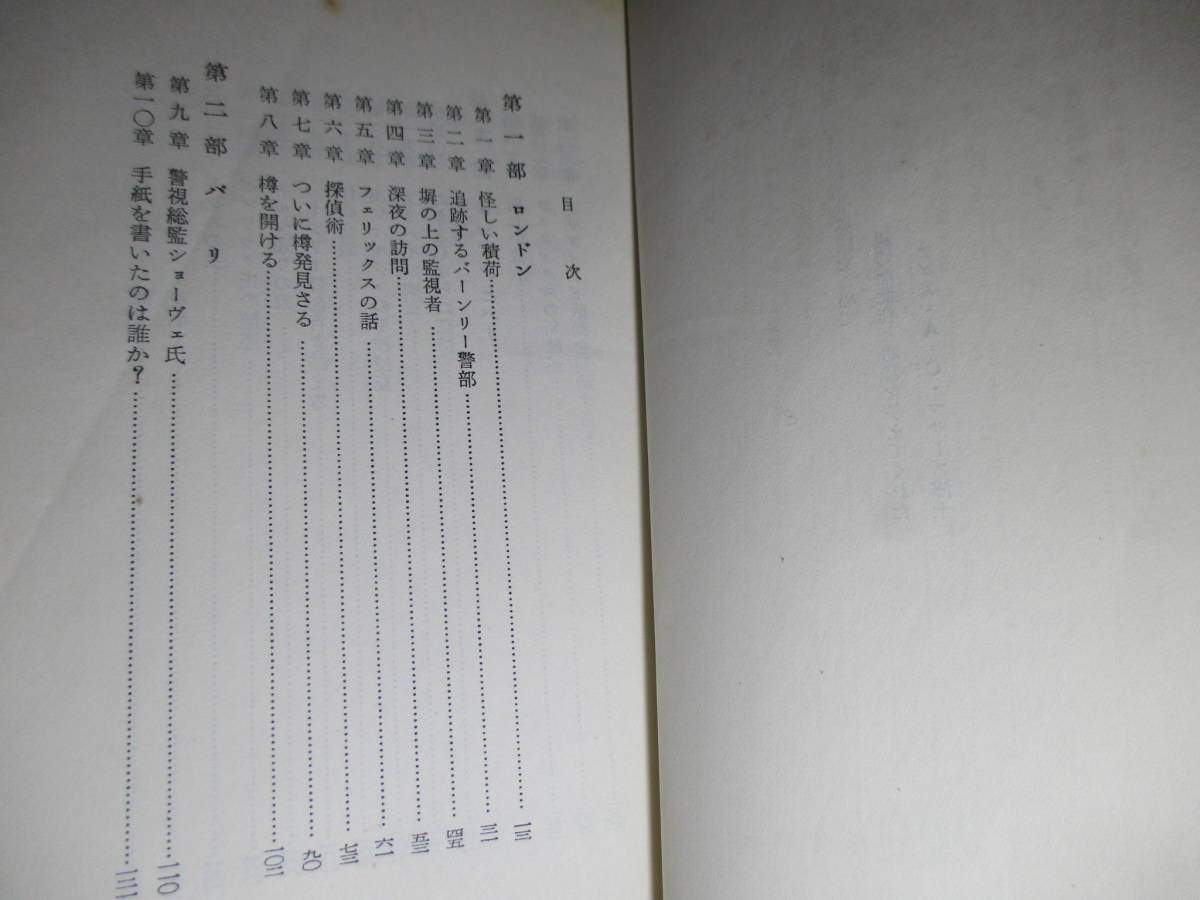 目次
第一部 ロンドン
第一章 怪しい積荷……一三
第二章 追跡するバーンリー警部……三一
第三章 塀の上の監視者……四五
第四章 深夜の訪問……五三
第五章 フェリックスの話……六一
第六章 探偵術……七三
第七章 ついに樽発見さる……九〇
第八章 樽を開ける……一〇二
第二部 パリ
第九章 警視総監ショーヴェ氏……一一〇
第一〇章 手紙を書いたのは誰か?……一二一